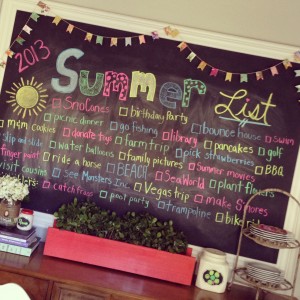 2013
Summer
List
SnoCones
birthday Party
picnic dinner
go fishing
bounce house
SWIM
m&m cookies
donate toys
library
pancakes
golf
Slip and slide
farm trip
pick strawberries
finger paint
water balloons
family pictures
Summer movies
BBQ
ride a horse
BEACH
SeaWorld
plant flowers
visit cousins
See Monsters Inc.
Vegas trip
make S'mores
catch frogs
pool party
trampoline
bike ride